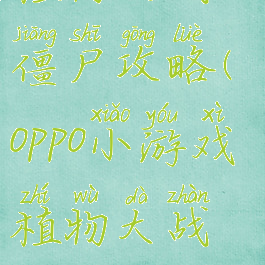 jiāng shī gōng lüè
僵尸攻略(
xiǎo yóu xì
oppo小游戏
zhí wù dà zhàn
植物大战